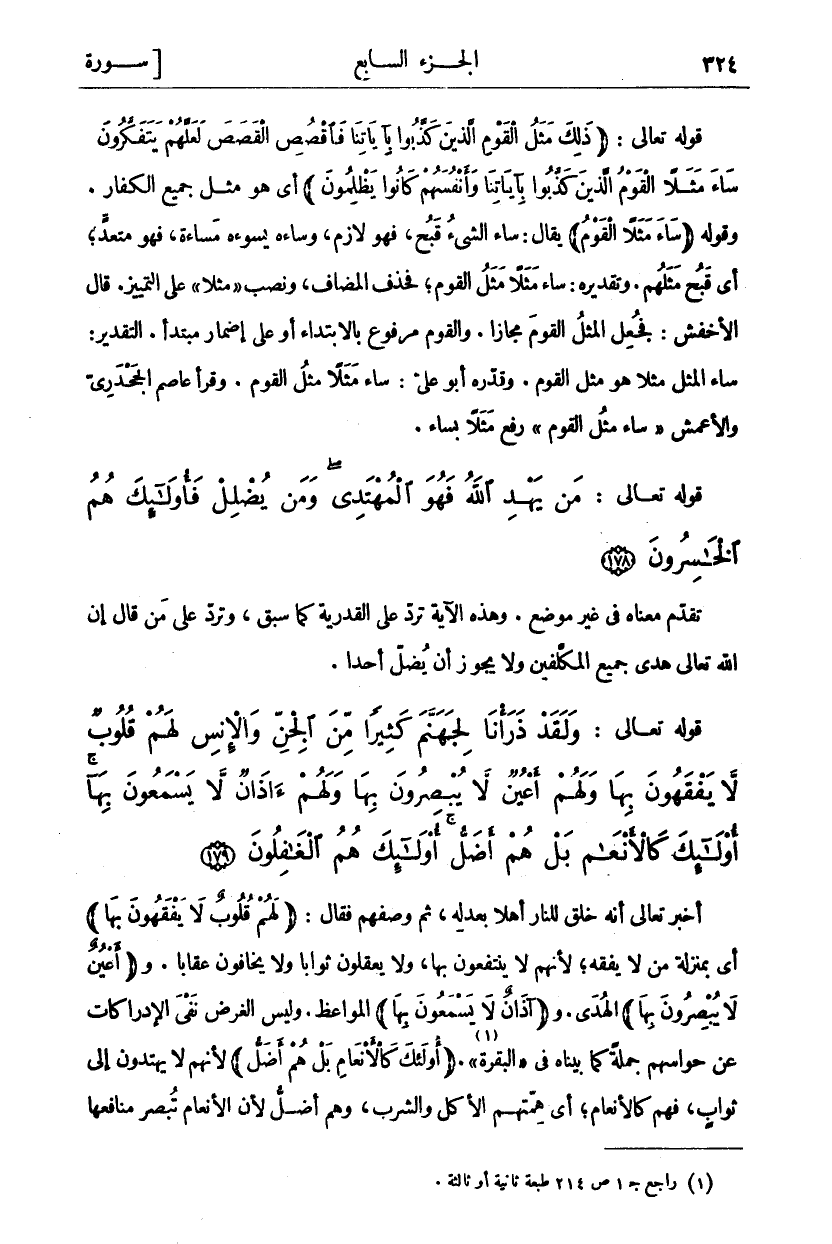 ٣٢٤ الجـزء السابع [ سـورة
قوله تعالى : ﴿ ذَلِكَ مَثَلُ الْقَوْمِ الَّذِينَ كَذَّبُوا بِآيَاتِنَا فَاقْصُصِ الْقَصَصَ لَعَلَّهُمْ يَتَفَكَّرُونَ
سَاءَ مَثَلًا الْقَوْمُ الَّذِينَ كَذَّبُوا بِآيَاتِنَا وَأَنْفُسَهُمْ كَانُوا يَظْلِمُونَ ﴾ أى هو مثـل جميع الكفار .
وقوله ﴿سَاءَ مَثَلًا الْقَوْمُ﴾ يقال: ساء الشىءُ قَبُح، فهو لازم، وساءه يسوءه مَساءة، فهو متعدٍّ؛
أى قَبُح مَثَلُهم. وتقديره: ساء مَثَلًا مَثَلُ القوم؛ فحذف المضاف، ونصب «مثلا» على التمييز. قال
الأخفش : فجُعل المثلُ القومَ مجازا . والقوم مرفوع بالابتداء أو على إضمار مبتدأ . التقدير:
ساء المثل مثلا هو مثل القوم . وقدّره أبو علىّ : ساء مَثَلًا مثلُ القوم . وقرأ عاصم الجَحْدَرِىّ
والأعمش « ساء مثلُ القوم » رفع مَثَلًا بساء .
قوله تعـالى : مَن يَهْـدِ ٱللَّهُ فَهُوَ ٱلْمُهْتَدِىۖ وَمَن يُضْلِلْ فَأُولَـٰٓئِكَ هُمُ
ٱلْخَـٰسِرُونَ ۝١٧٨
تقدّم معناه فى غير موضع . وهذه الآية تردّ على القدرية كما سبق ، وتردّ على مَن قال إن
الله تعالى هدى جميع المكلَّفين ولا يجوز أن يُضلّ أحدا .
قوله تعـالى : وَلَقَدْ ذَرَأْنَا لِجَهَنَّمَ كَثِيرًا مِّنَ ٱلْجِنِّ وَٱلْإِنسِ لَهُمْ قُلُوبٌ
لَّا يَفْقَهُونَ بِهَا وَلَهُـمْ أَعْيُنٌ لَّا يُبْصِرُونَ بِهَا وَلَهُـمْ ءَاذَانٌ لَّا يَسْمَعُونَ بِهَآۚ
أُوْلَـٰٓئِكَ كَٱلْأَنْعَـٰمِ بَلْ هُمْ أَضَلُّۚ أُوْلَـٰٓئِكَ هُمُ ٱلْغَـٰفِلُونَ ۝١٧٩
أخبر تعالى أنه خلق للنار أهلا بعدله ، ثم وصفهم فقال : ﴿ لَهُمْ قُلُوبٌ لَا يَفْقَهُونَ بِهَا ﴾
أى بمنزلة من لا يفقه؛ لأنهم لا ينتفعون بها، ولا يعقلون ثوابا ولا يخافون عقابا . و ﴿ أَعْيُنٌ
لَا يُبْصِرُونَ بِهَا ﴾ الهُدَى. و﴿ آذَانٌ لَا يَسْمَعُونَ بِهَا ﴾ المواعظ. وليس الغرض نَفْىَ الإدراكات
عن حواسهم جملةً كما بيناه فى «البقرة»(١). ﴿ أُولَئِكَ كَالْأَنْعَامِ بَلْ هُمْ أَضَلُّ ﴾ لأنهم لا يهتدون إلى
ثوابٍ، فهم كالأنعام؛ أى هِمّتهـم الأكل والشرب، وهم أضـلُّ لأن الأنعام تُبصر منافعها
(١) راجع جـ ١ ص ٢١٤ طبعة ثانية أو ثالثة .